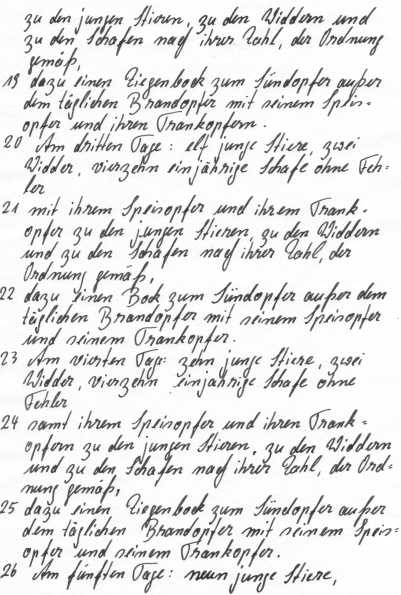 zu den jungen Stieren, zu den Widdern und
zu den Schafen nach ihrer Zahl, der Ordnung
gemäß,
19 dazu einen Ziegenbock zum Sündopfer außer
dem täglichen Brandopfer mit seinem Speis-
opfer und ihren Trankopfern.
20 Am dritten Tage: elf junge Stiere, zwei
Widder, vierzehn einjährige Schafe ohne Feh-
ler
21 mit ihrem Speisopfer und ihrem Trank-
opfer zu den jungen Stieren, zu den Widdern
und zu den Schafen nach ihrer Zahl, der
Ordnung gemäß,
22 dazu einen Bock zum Sündopfer außer dem
täglichen Brandopfer mit seinem Speisopfer
und seinem Trankopfer.
23 Am vierten Tage: zehn junge Stiere, zwei
Widder, vierzehn einjährige Schafe ohne
Fehler
24 samt ihrem Speisopfer und ihren Trank-
opfern zu den jungen Stieren, zu den Widdern
und zu den Schafen nach ihrer Zahl, der Ord-
nung gemäß,
25 dazu einen Ziegenbock zum Sündopfer außer
dem täglichen Brandopfer mit seinem Speis-
opfer und seinem Trankopfer.
26 Am fünften Tage: neun junge Stiere,